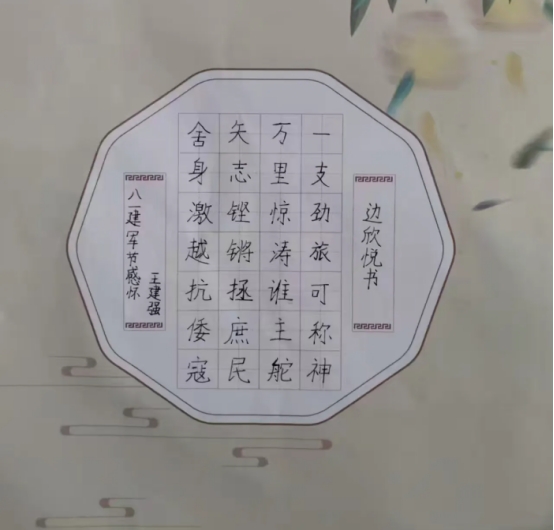 八一建军节感怀
王建强
舍身激越抗倭寇
矢志铿锵拯庶民
万里惊涛谁主舵
一支劲旅可称神
边欣悦书